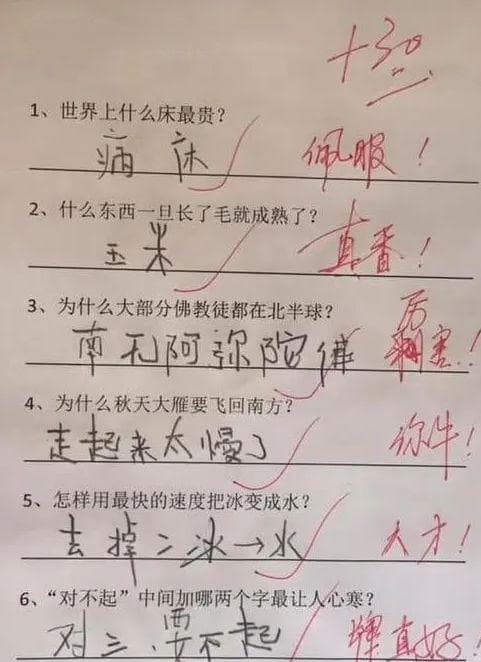 +30
1、世界上什么床最贵?
病床 佩服!
2、什么东西一旦长了毛就成熟了?
玉米 真香!
3、为什么大部分佛教徒都在北半球?
南无阿弥陀佛 厉害!
4、为什么秋天大雁要飞回南方?
走起来太慢了 你牛!
5、怎样用最快的速度把冰变成水?
去掉冫冰→水 人才!
6、“对不起”中间加哪两个字最让人心寒?
对三,要不起 牌真好!